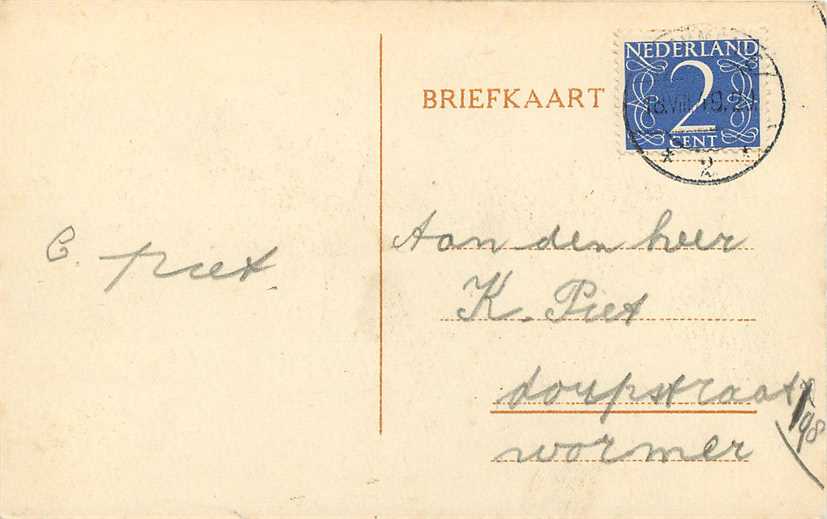 BRIEFKAART
NEDERLAND
2
CENT
2
C. Piet.
Aan den heer
K. Piet
dorpstraat
98
wormer